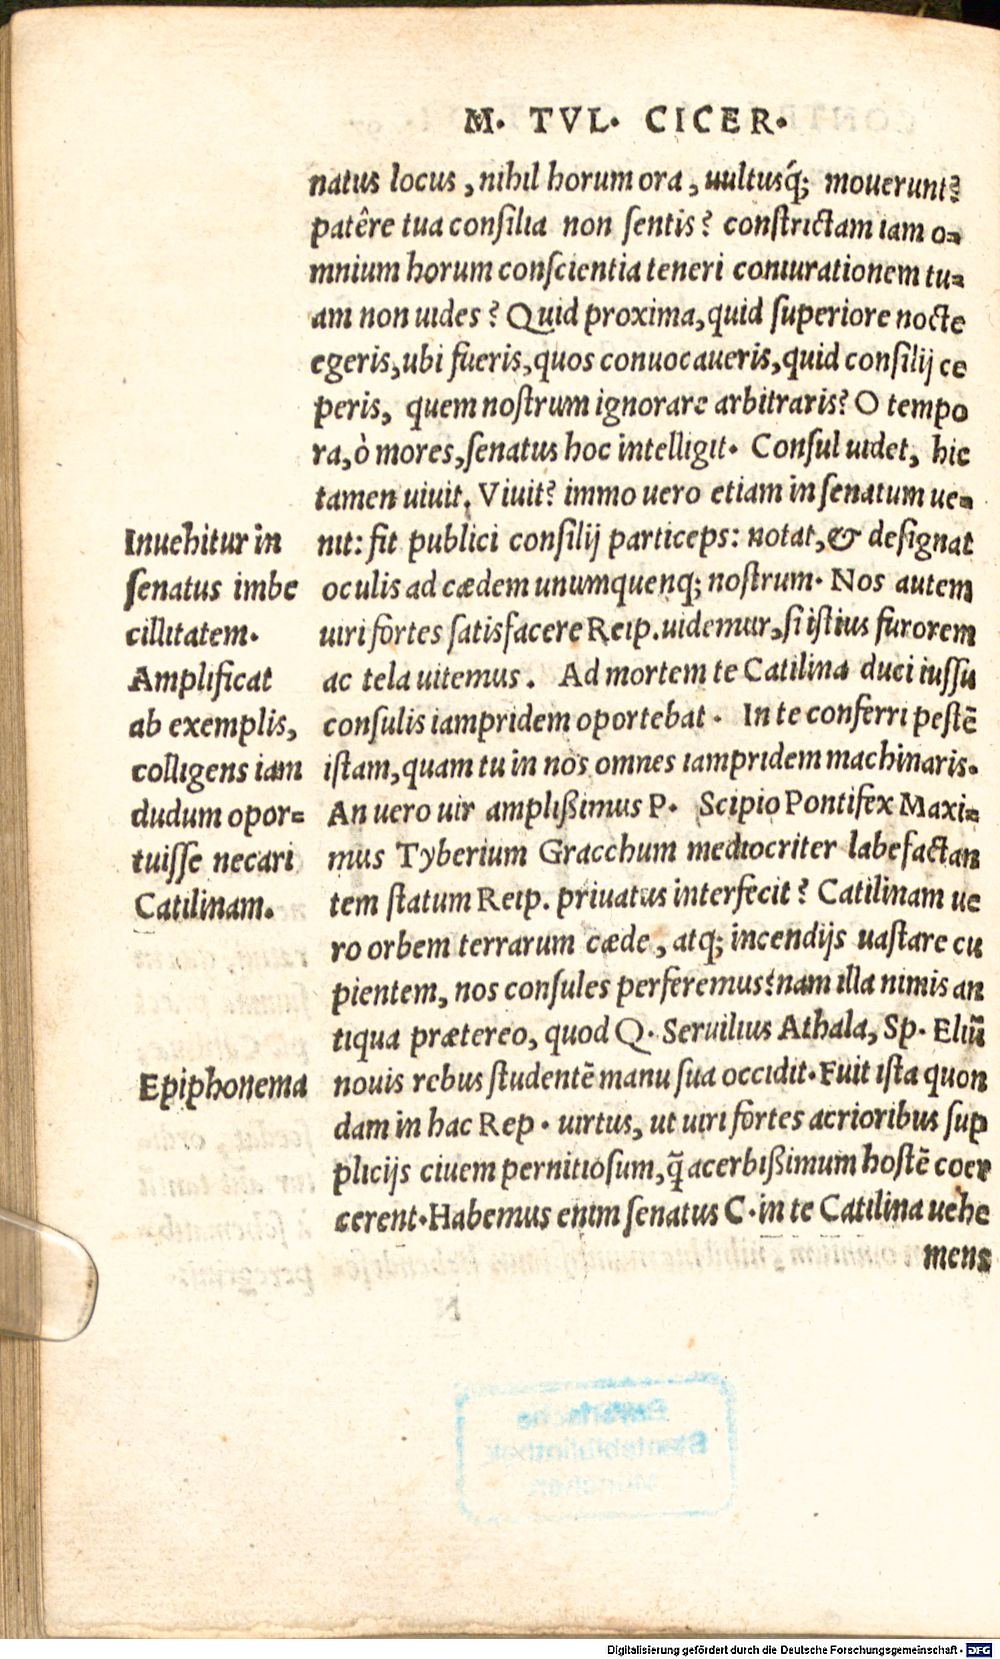 M. TVL. CICER.
natus locus, nihil horum ora, uultusq́; mouerunt?
patêre tua consilia non sentis? constrictam iam o=
mnium horum conscientia teneri coniurationem tu=
am non uides? Quid proxima, quid superiore nocte
egeris, ubi fueris, quos conuocaueris, quid consilij ce
peris, quem nostrum ignorare arbitraris? O tempo
ra, ò mores, senatus hoc intelligit. Consul uidet, hic
tamen uiuit. Viuit? immo uero etiam in senatum ue=
nit: fit publici consilij particeps: notat, & designat
oculis ad cædem unumquenq; nostrum. Nos autem
uiri fortes satisfacere Reip. uidemur, si istius furorem
ac tela uitemus. Ad mortem te Catilina duci iussu
consulis iampridem oportebat. In te conferri pestē
istam, quam tu in nos omnes iampridem machinaris.
An uero uir amplißimus P. Scipio Pontifex Maxi=
mus Tyberium Gracchum mediocriter labefactan
tem statum Reip. priuatus interfecit? Catilinam ue
ro orbem terrarum cæde, atq; incendijs uastare cu
pientem, nos consules perferemus? nam illa nimis an
tiqua prætereo, quod Q. Seruilius Athala, Sp. Eliū
nouis rebus studentē manu sua occidit. Fuit ista quon
dam in hac Rep. uirtus, ut uiri fortes acrioribus sup
plicijs ciuem pernitiosum, q̃ acerbißimum hostē coer
cerent. Habemus enim senatus C. in te Catilina uehe
mens
Inuehitur in
senatus imbe
cillitatem.
Amplificat
ab exemplis,
colligens iam
dudum opor=
tuisse necari
Catilinam.
Epiphonema
Digitalisierung gefördert durch die Deutsche Forschungsgemeinschaft - DFG